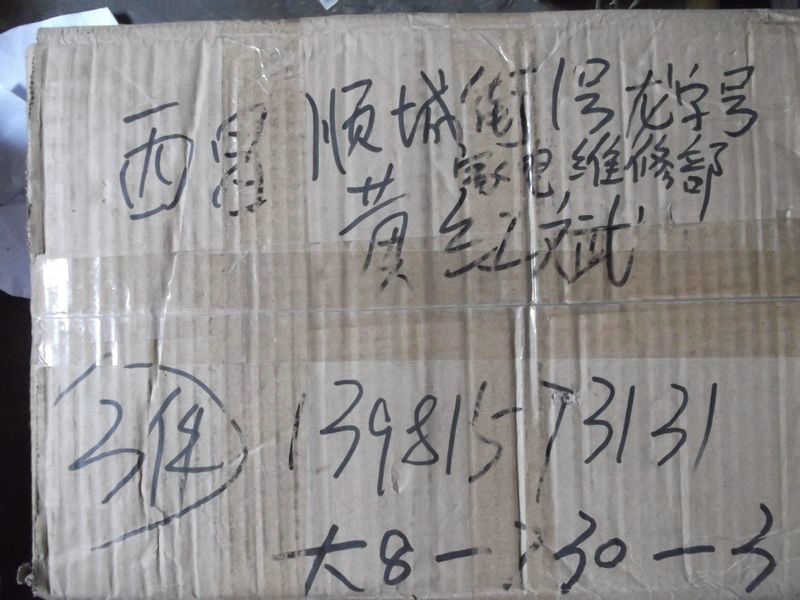 西昌顺城街1号龙字号
家电维修部
黄红斌
3件 139815 73131
大8-330-3